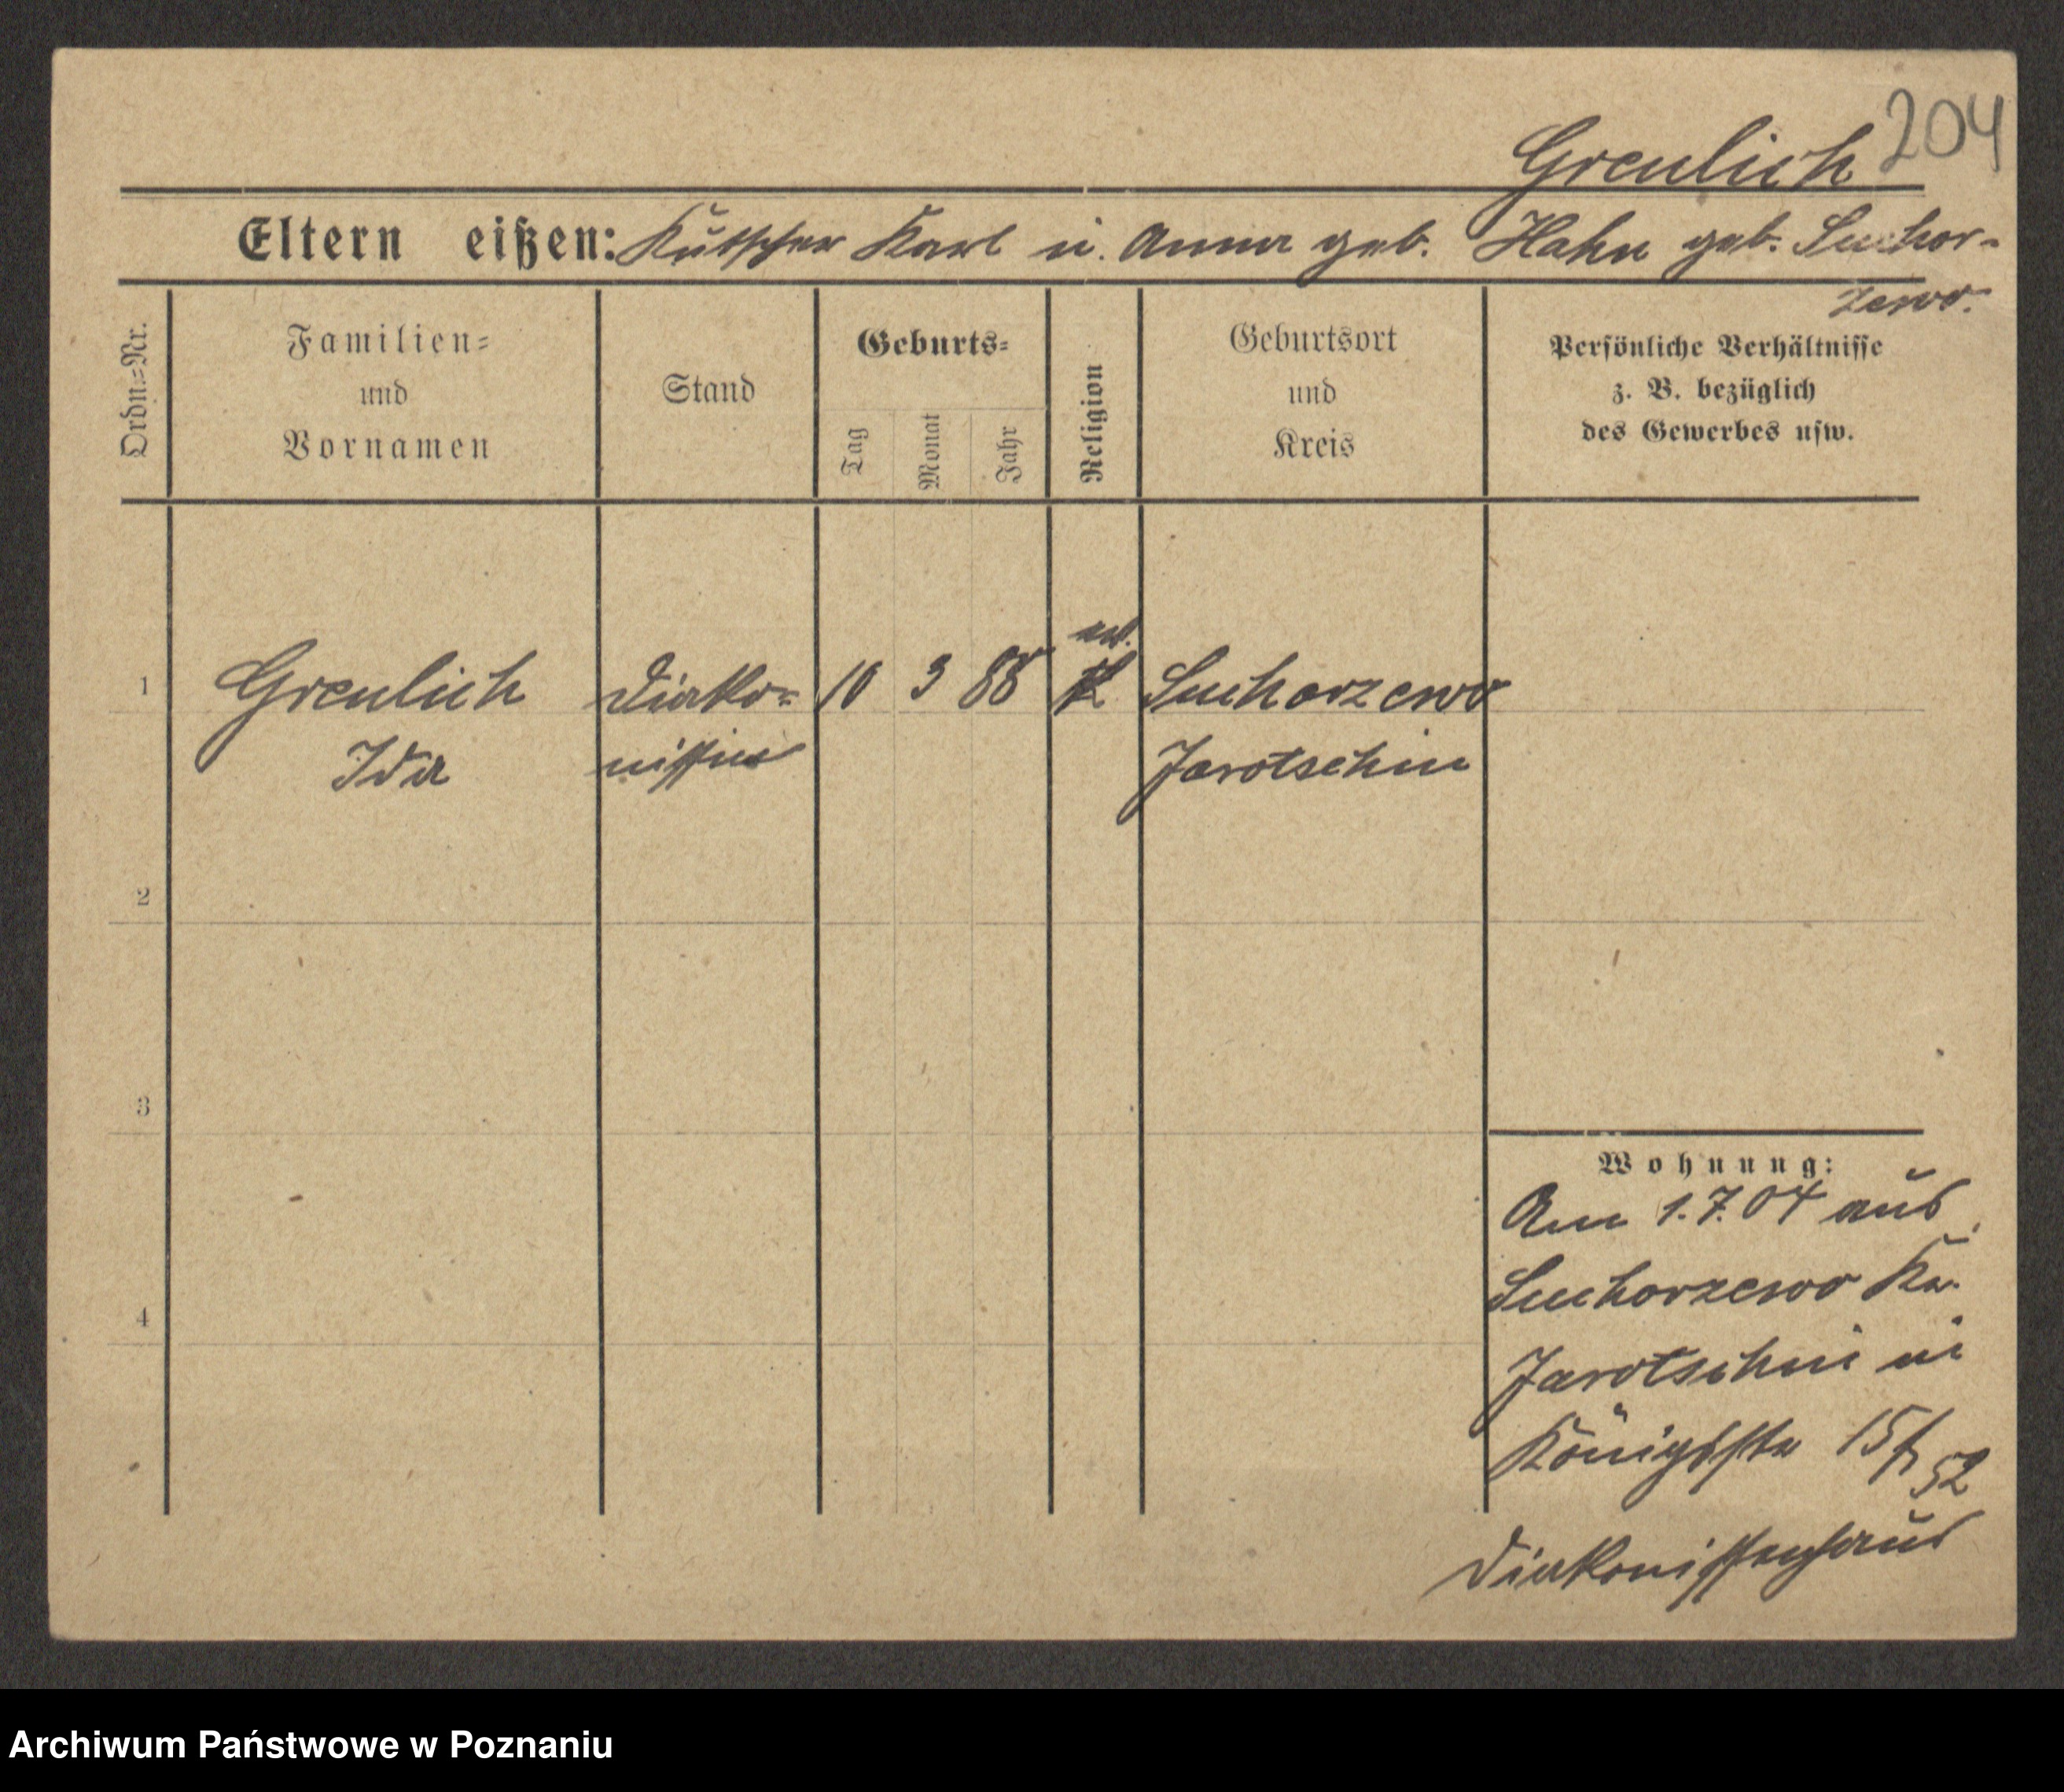 204
Greulich
Eltern eißen: Kutscher Karl u. Anna geb. Hahn geb. Suchor-
zewo.
Ordn.=Nr.
Familien=
und
Vornamen
Stand
Geburts=
Tag
Monat
Jahr
Religion
Geburtsort
und
Kreis
Persönliche Verhältnisse
z. B. bezüglich
des Gewerbes usw.
ev.
1 Greulich Diako= 10 3 88 Suchorzewo
Ida nissin Jarotschin
2
3
4
Wohnung:
Am 1.7.04 aus
Suchorzewo Kr.
Jarotschin in
Königsstr 15
52
Diakonissenhaus
Archiwum Państwowe w Poznaniu